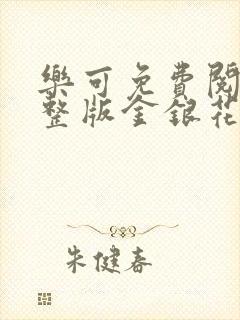 樂可免費閱
整版金銀花
朱健春